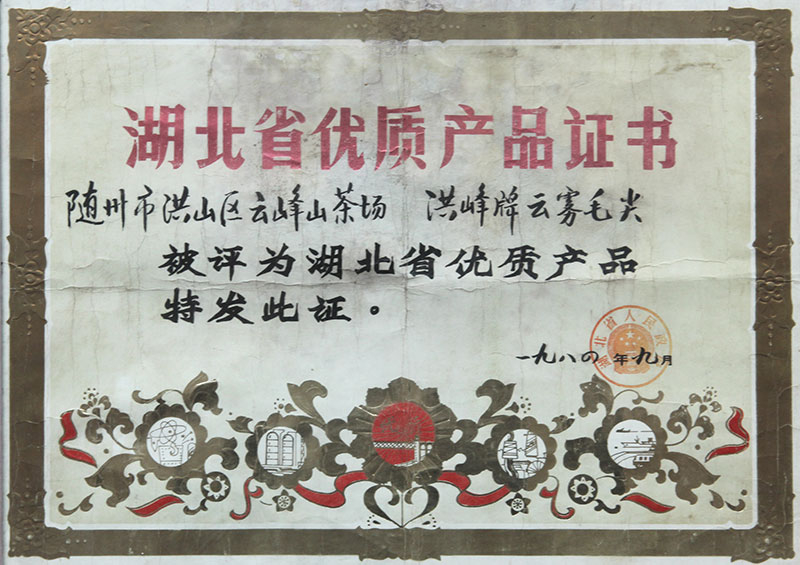 湖北省优质产品证书
随州市洪山区云峰山茶场 洪峰牌云雾毛尖
被评为湖北省优质产品
特发此证。
湖北省人民政
一九八〇年九月